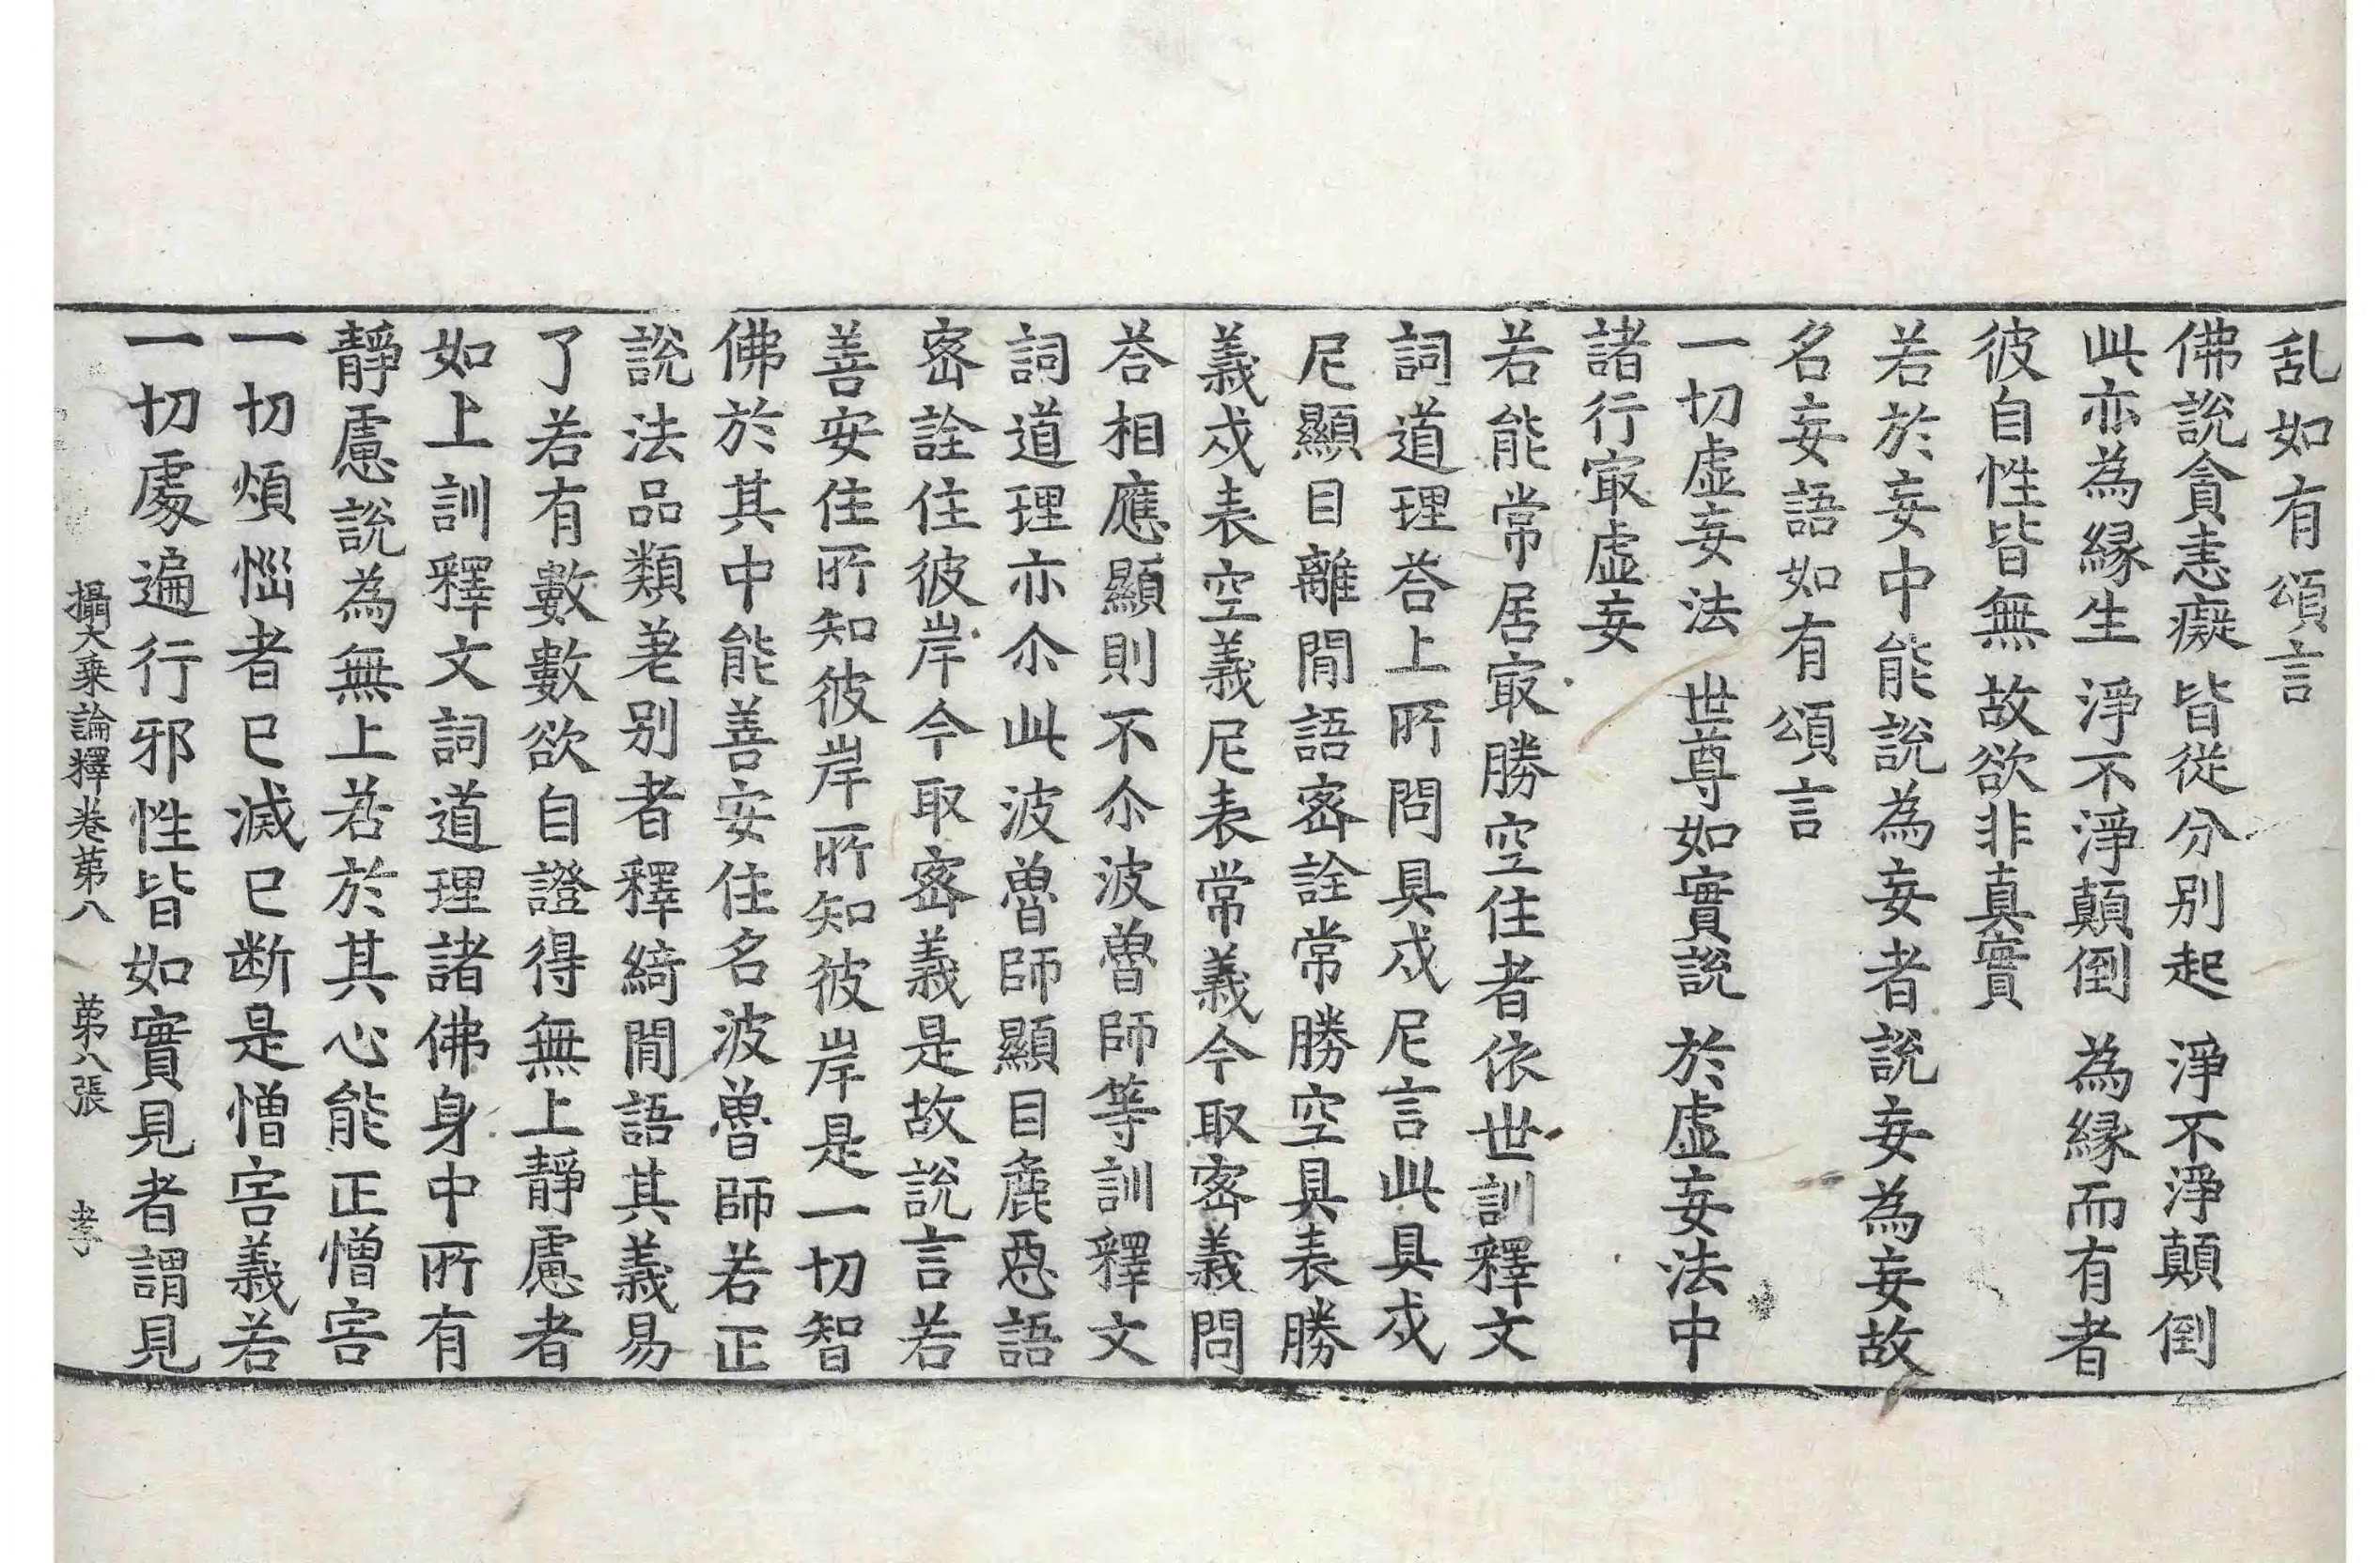 乱如有頌言
佛說貪恚癡 皆從分別起 淨不淨顛倒
此亦為緣生 淨不淨顛倒 為緣而有者
彼自性皆無 故欲非真實
若於妄中能說為妄者說妄為妄故
名妄語如有頌言
一切虛妄法 世尊如實說 於虛妄法中
諸行冣虛妄
若能常居冣勝空住者依世訓釋文
詞道理荅上所問具戍尼言此具戍
尼顯目離間語宻詮常勝空具表勝
義戍表空義尼表常義今取宻義問
荅相應顯則不尒波魯師等訓釋文
詞道理亦尒此波魯師顯目麁惡語
宻詮住彼岸今取宻義是故說言若
善安住所知彼岸所知彼岸是一切智
佛於其中能善安住名波魯師若正
說法品類差別者釋綺間語其義易
了若有數數欲自證得無上靜慮者
如上訓釋文詞道理諸佛身中所有
靜慮說為無上若於其心能正憎害
一切煩惱者已滅已断是憎害義若
一切處遍行邪性皆如實見者謂見
攝大乘論釋卷第八 第八張 孝